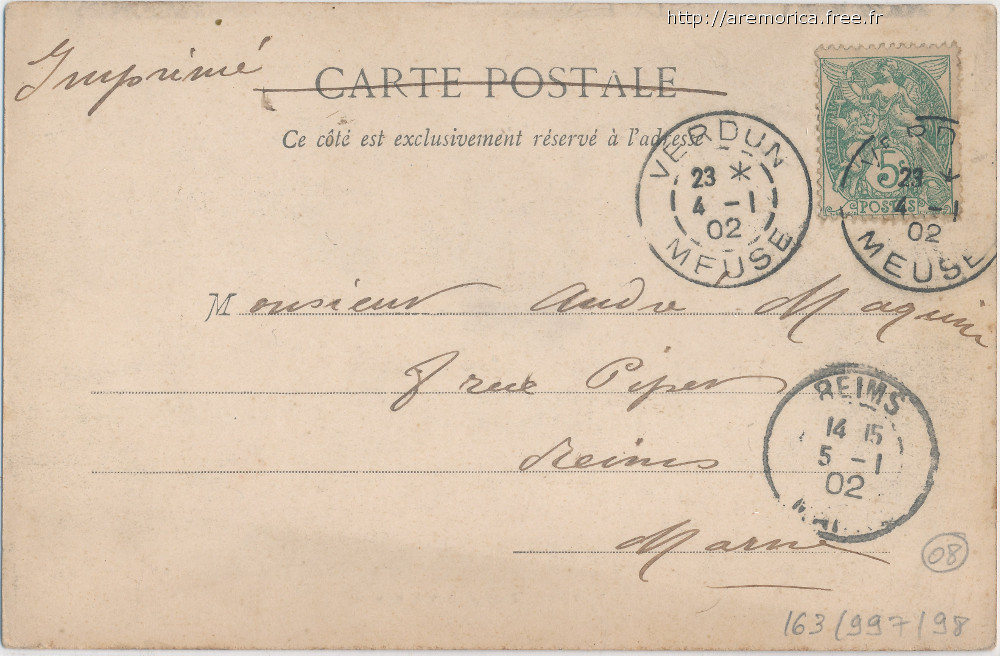 http://aremorica.free.fr
Imprimé
CARTE POSTALE
Ce côté est exclusivement réservé à l'adresse
5c
POSTES
VERDUN
23 *
4 - 1
02
MEUSE
23
4 - 1
02
MEUSE
Monsieur Andre Maquin
8 rue Piper
Reims
Marne
REIMS
14 15
5 - 1
02
08
163/997/98